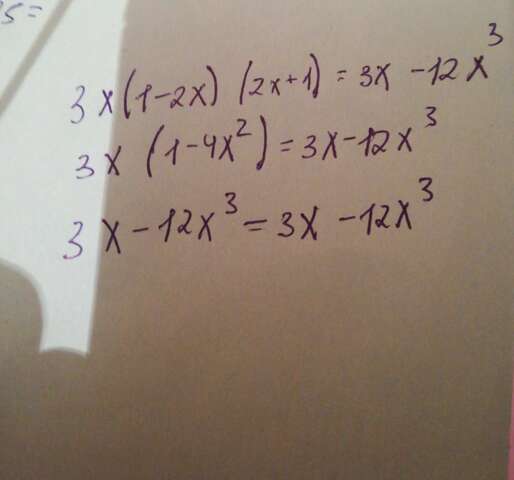 5=
3x(1-2x) (2x+1) = 3x - 12x³
3x (1-4x²) = 3x-12x³
3x - 12x³ = 3x - 12x³